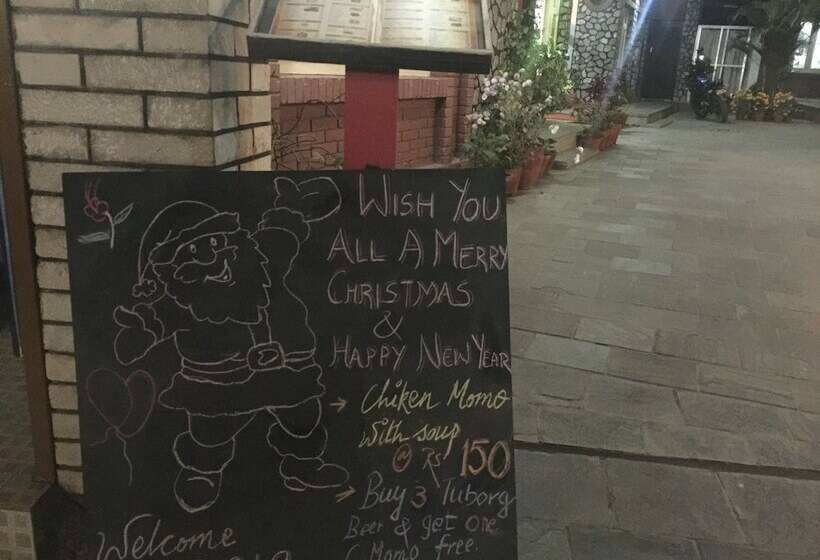 WISH YOU
ALL A MERRY
CHRISTMAS
&
HAPPY NEW YEAR
→ Chiken Momo
with soup
@ Rs 150
→ Buy 3 Tuborg
Beer & get one
C Momo free.
Welcome